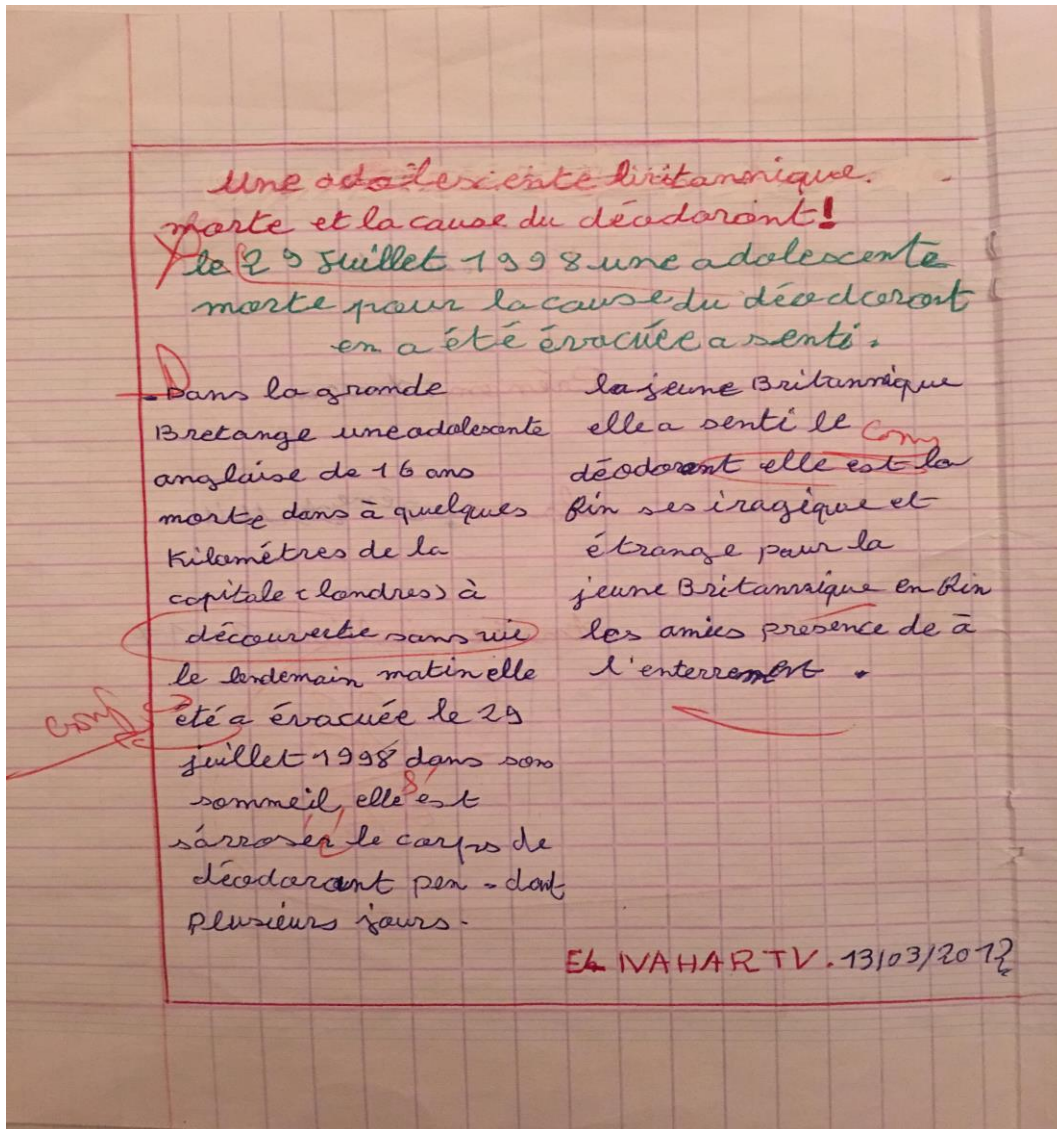 Une adolescente britannique.
morte et la cause du déodorant!
le 29 Juillet 1998 une adolescente
morte pour la cause du déodcorant
en a été évacuée a senti.
- Dans la grande
Bretange une adolescente
anglaise de 16 ans
morte dans à quelques
Kilométres de la
capitale (londres) à
découverte sans vie
le lendemain matin elle
été a évacuée le 29
juillet 1998 dans son
sommeil, elle est
s'arrosér le corps de
déodorant pen-dant
plusieurs jours.
la jeune Britannique
elle a senti le
déodorant elle est la
fin ses iragique et
étrange pour la
jeune Britannique en fin
les amies présence de à
l'enterrement.
conj
EL NAHAR TV. 13/03/2012